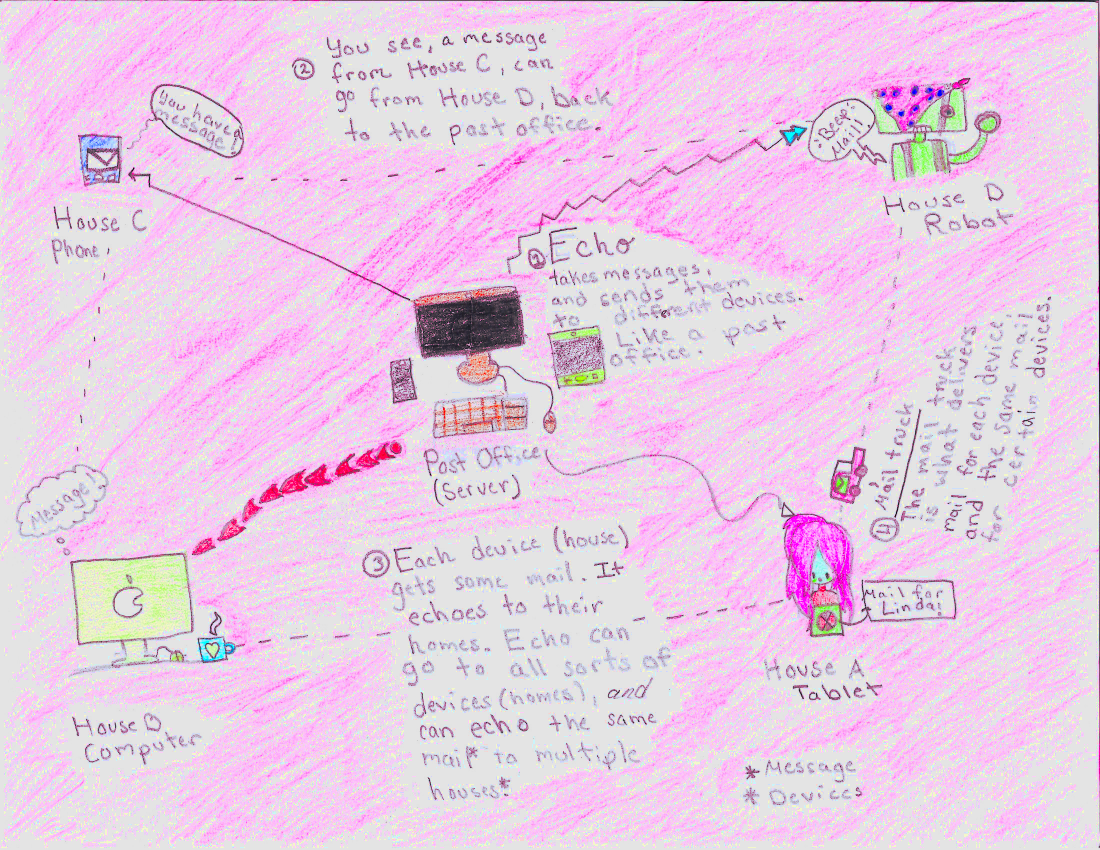 ② You see, a message
from House C, can
go from House D, back
to the post office.
You have a
message!
House C
Phone
Beep!
Mail!
House D
Robot
① Echo
takes messages,
and sends them
to different devices.
Like a post
office.
Post Office
(Server)
④ Mail truck
The mail truck
is what delivers
mail for each device,
and the same mail
for certain devices.
Message!
House B
Computer
③ Each device (house)
gets some mail. It
echoes to their
homes. Echo can
go to all sorts of
devices (homes), and
can echo the same
mail* to multiple
houses*.
Mail for
Linda!
House A
Tablet
* Message
* Devices